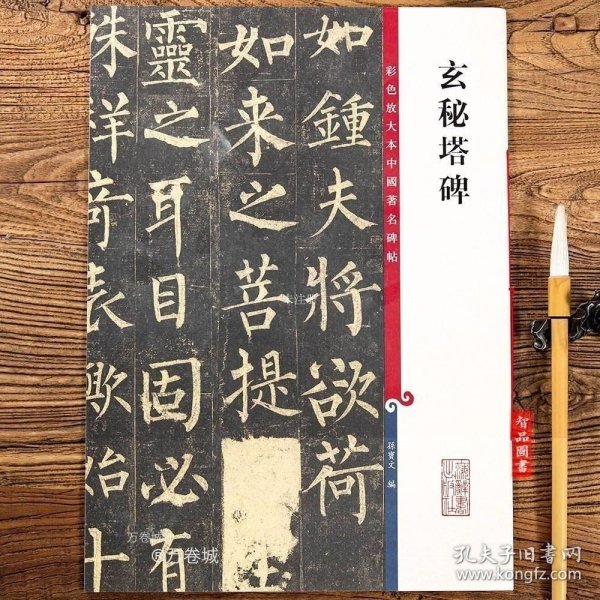 玄秘塔碑
彩色放大本中國著名碑帖
孫寶文 編
如鍾夫將欲荷
如来之菩提
靈之耳目固必有
殊祥奇表歟始十
智品圖書
万卷城
@万卷城
孔夫子旧書网
www.kongfz.com